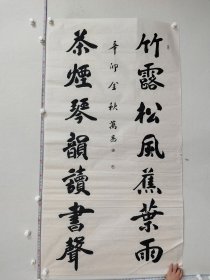 竹露松風蕉葉雨
茶煙琴韻讀書聲
辛卯金秋萬